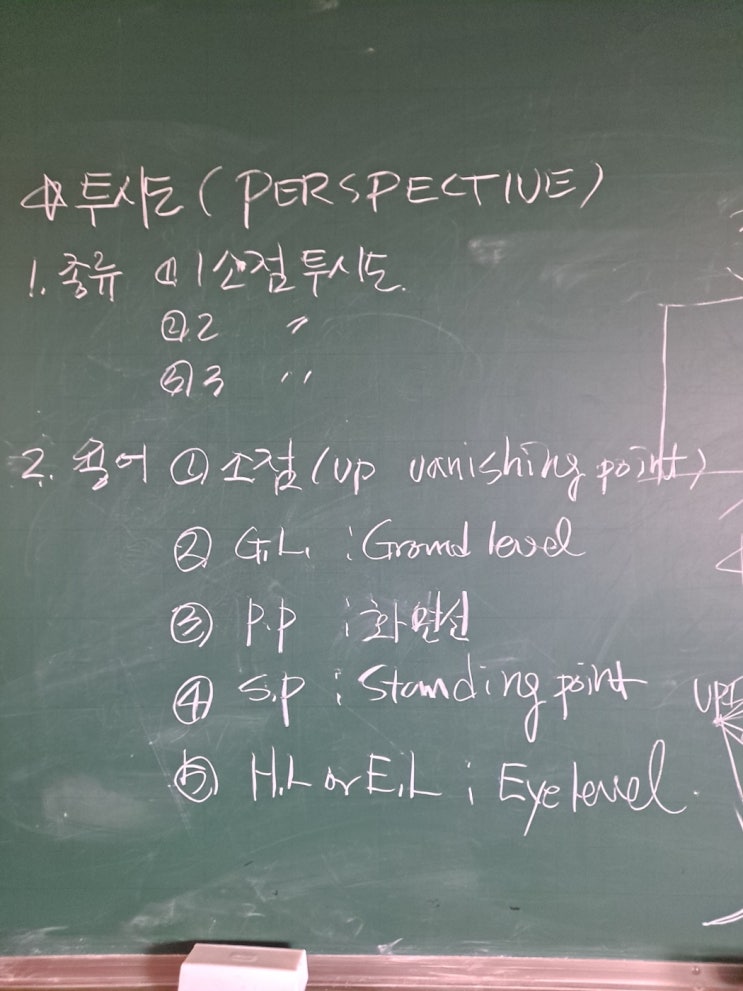 ☆투시도 (PERSPECTIVE)
1. 종류 ① 1소점투시도.
② 2 〃
③ 3 〃
2. 용어 ① 소점 (VP vanishing point)
② G.L. : Ground level
③ P.P : 화면선
④ S.P : Standing point
⑤ H.L or E.L : Eye level.